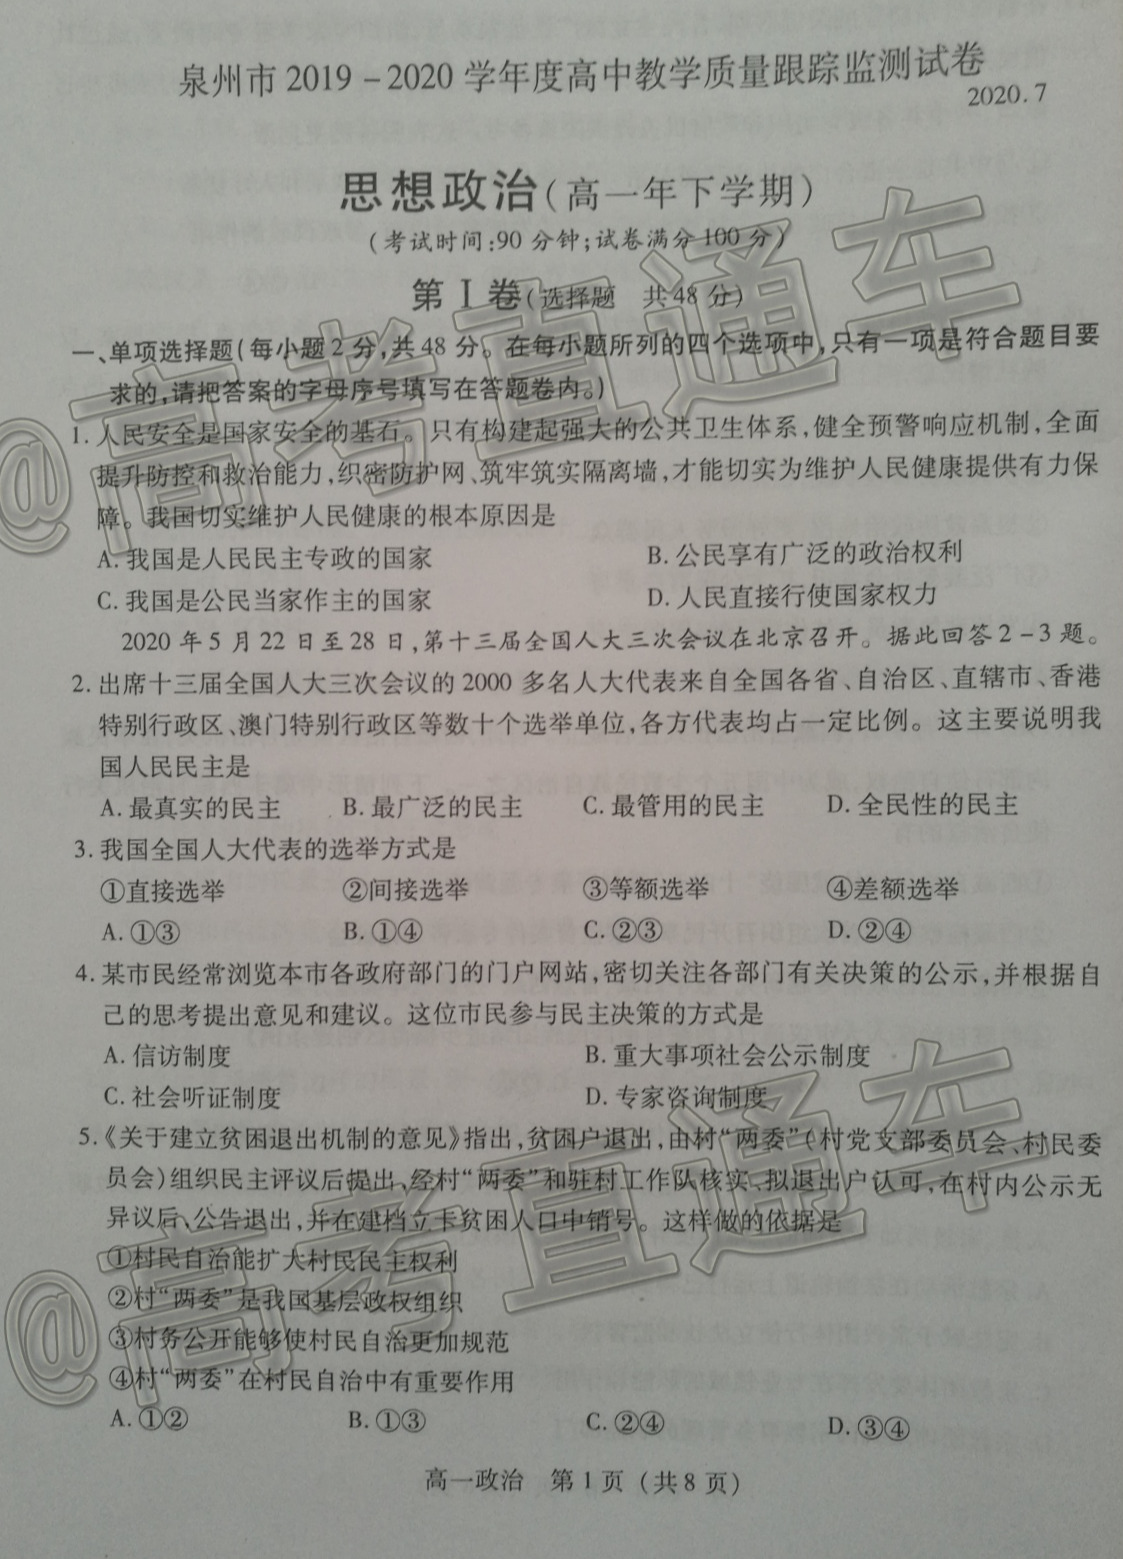 泉州市2019-2020学年度高中教学质量跟踪监测试卷
2020.7
思想政治(高一年下学期)
(考试时间:90分钟;试卷满分100分)
第Ⅰ卷(选择题 共48分)
一、单项选择题(每小题2分,共48分。在每小题所列的四个选项中,只有一项是符合题目要
求的,请把答案的字母序号填写在答题卷内。)
1.人民安全是国家安全的基石。只有构建起强大的公共卫生体系,健全预警响应机制,全面
提升防控和救治能力,织密防护网、筑牢筑实隔离墙,才能切实为维护人民健康提供有力保
障。我国切实维护人民健康的根本原因是
A.我国是人民民主专政的国家 B.公民享有广泛的政治权利
C.我国是公民当家作主的国家 D.人民直接行使国家权力
2020年5月22日至28日,第十三届全国人大三次会议在北京召开。据此回答2-3题。
2.出席十三届全国人大三次会议的2000多名人大代表来自全国各省、自治区、直辖市、香港
特别行政区、澳门特别行政区等数十个选举单位,各方代表均占一定比例。这主要说明我
国人民民主是
A.最真实的民主 B.最广泛的民主 C.最管用的民主 D.全民性的民主
3.我国全国人大代表的选举方式是
①直接选举 ②间接选举 ③等额选举 ④差额选举
A.①③ B.①④ C.②③ D.②④
4.某市民经常浏览本市各政府部门的门户网站,密切关注各部门有关决策的公示,并根据自
己的思考提出意见和建议。这位市民参与民主决策的方式是
A.信访制度 B.重大事项社会公示制度
C.社会听证制度 D.专家咨询制度
5.《关于建立贫困退出机制的意见》指出,贫困户退出,由村“两委”(村党支部委员会、村民委
员会)组织民主评议后提出、经村“两委”和驻村工作队核实、拟退出户认可,在村内公示无
异议后、公告退出,并在建档立卡贫困人口中销号。这样做的依据是
①村民自治能扩大村民民主权利
②村“两委”是我国基层政权组织
③村务公开能够使村民自治更加规范
④村“两委”在村民自治中有重要作用
A.①② B.①③ C.②④ D.③④
高一政治 第1页(共8页)
@高考直通车
@高考直通车